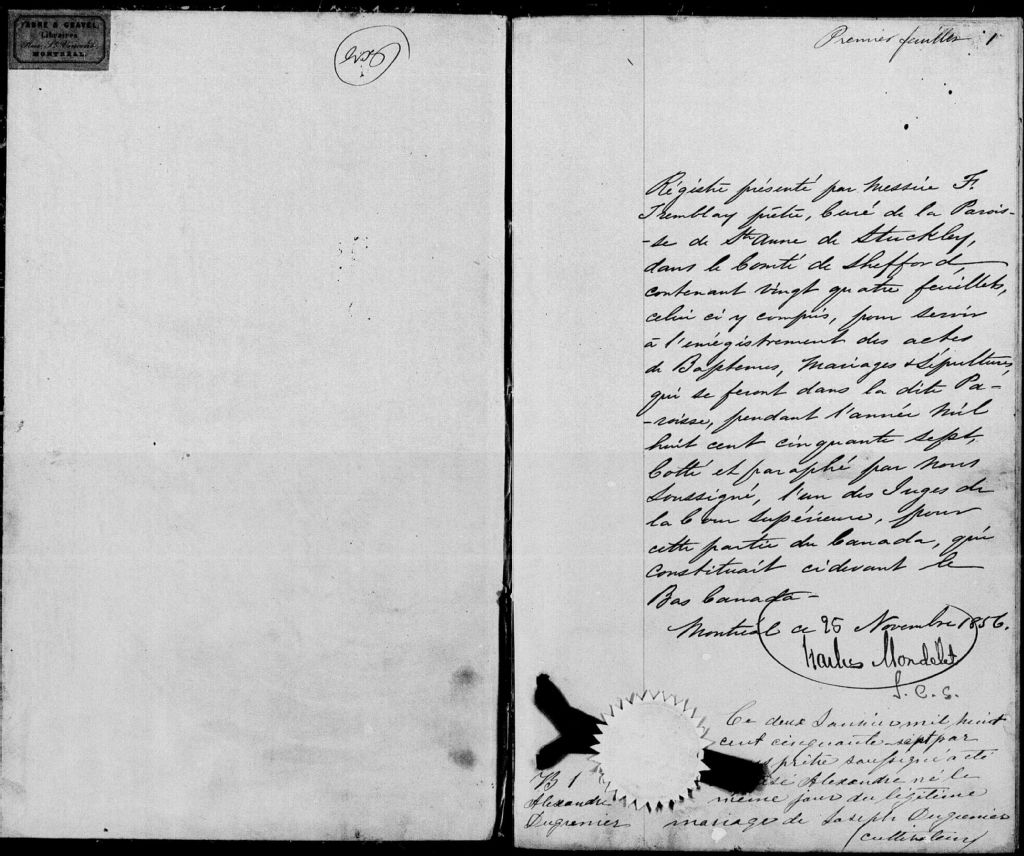 FABRE & GRAVEL,
Libraires
Rue St. Vincent
MONTRÉAL.
Premier feuillet 1
Régistre présenté par Messire F.
Tremblay prêtre, Curé de la Parois-
-se de Ste Anne de Stuckley,
dans le Comté de Shefford,
contenant vingt quatre feuillets,
celui ci y compris, pour servir
à l'enrégistrement des actes
de Baptemes, Mariages & Sépultures,
qui se feront dans la dite Pa-
-roisse, pendant l'année mil
huit cent cinquante sept.
Cotté et paraphé par Nous
Soussigné, l'un des Juges de
la Cour Supérieure, pour
cette partie du Canada, qui
constituait cidevant le
Bas Canada -
Montréal ce 25 Novembre 1856.
Charles Mondelet
J. C. S.
Ce deux Janvier mil huit
cent cinquante-sept par
prêtre soussigné a été
Alexandre né le
même jour du légitime
mariage de Joseph Dugrenier
cultivateur
B 1
Alexandre
Dugrenier